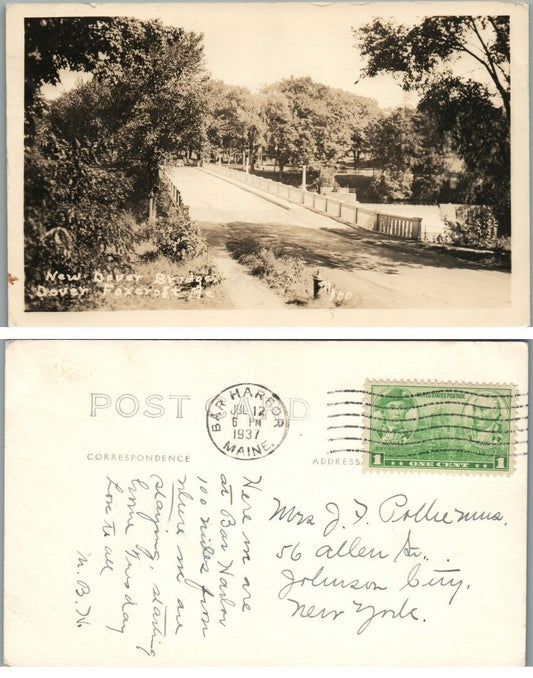 New Dover Bridge
Dover Foxcroft Me
POST CARD
CORRESPONDENCE
ADDRESS
BAR HARBOR
JUL 12
6 PM
1937
MAINE.
UNITED STATES POSTAGE
1 ONE CENT 1
Here we are
at Bar Harbor
100 miles from
where we are
staying, starting
home Tuesday
Love to all
M. B. N.
Mrs J. F. Polhemus,
56 Allen St.,
Johnson City,
New York.